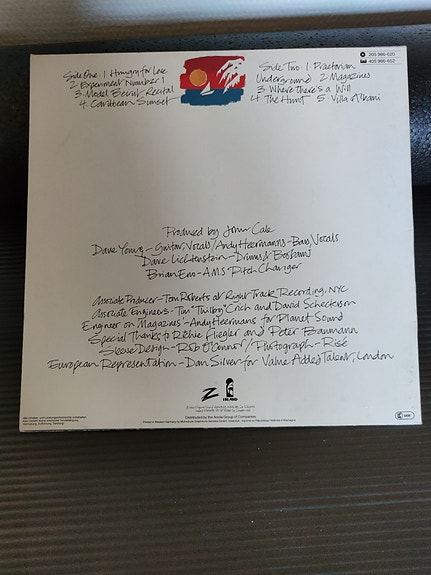 Side One: 1 Hungry for Love
2 Experiment Number 1
3 Model Beirut Recital
4 Caribbean Sunset
Side Two: 1 Praetorian
Underground 2 Magazines
3 Where There's a Will
4 The Hunt 5 Villa Albani
205 986-620
405 986-652
Produced by John Cale
Dave Young - Guitar, Vocals / Andy Heermanns - Bass, Vocals
Dave Lichtenstein - Drums &
Brian Eno - AMS Pitch Changer
Associate Producer - Tom Roberts at Right Track Recording, NYC
Associate Engineers - Tim Crich and David Schecterson
Engineer on Magazines - Andy Heermans for Planet Sound
Special Thanks to Richie Fliegler and Peter Baumann
Sleeve Design - Rob O'Connor / Photograph - Risé
European Representation - Dan Silver for Value Added Talent, London
Z
ISLAND
Distributed by the Ariola Group of Companies